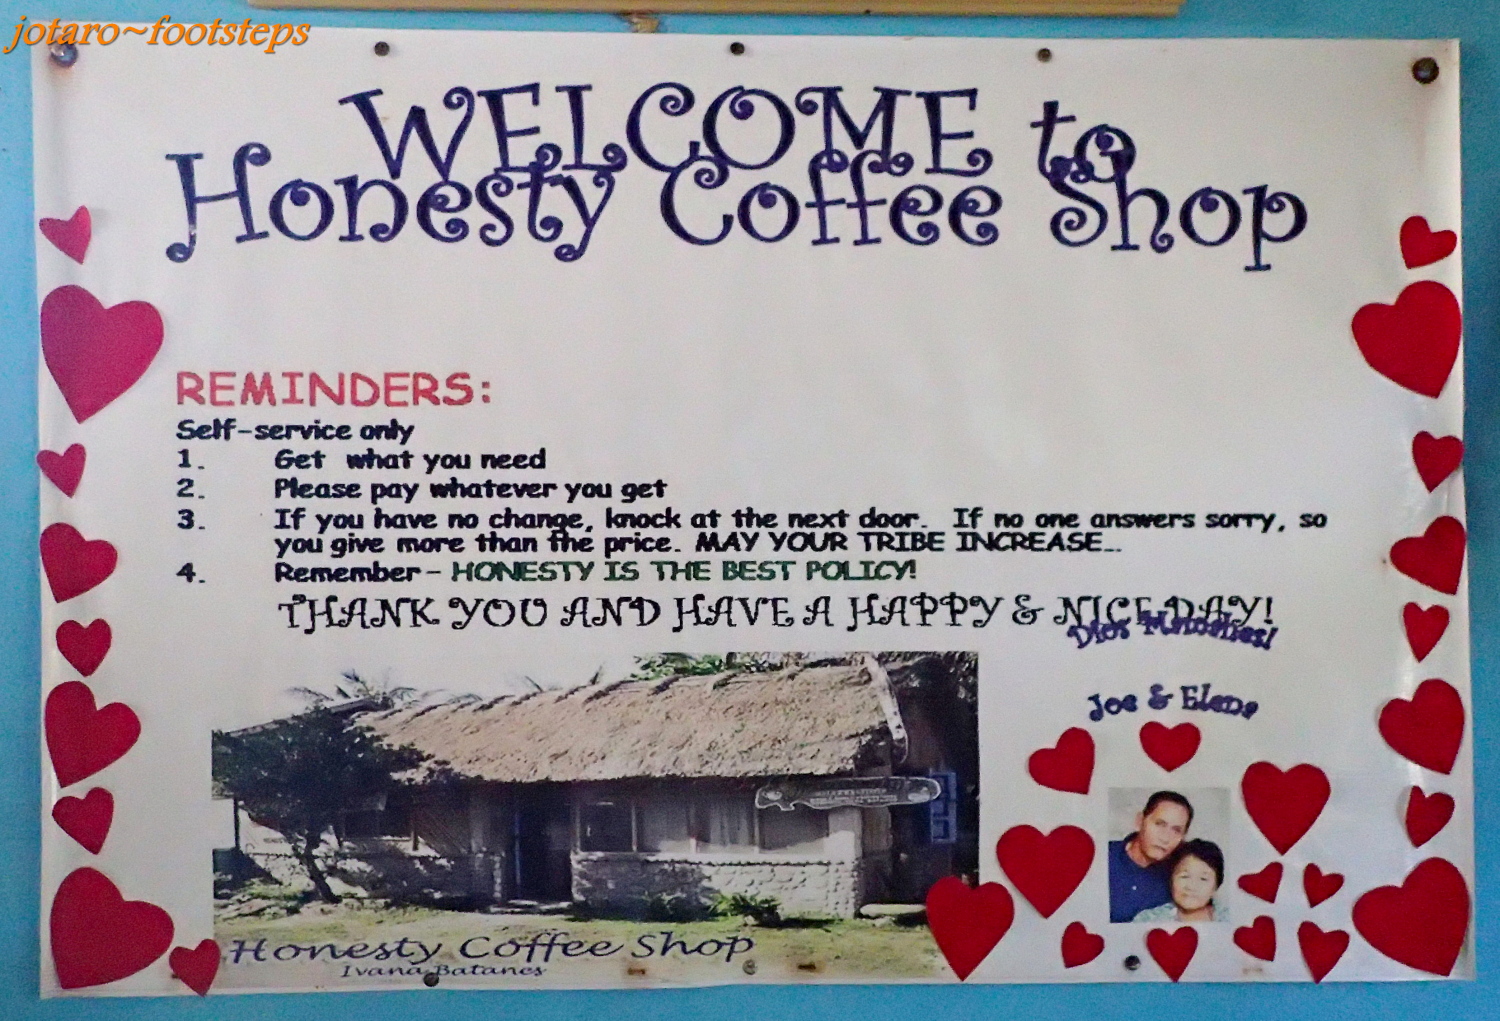 jotaro~footsteps
WELCOME to
Honesty Coffee Shop
REMINDERS:
Self-service only
1. Get what you need
2. Please pay whatever you get
3. If you have no change, knock at the next door. If no one answers sorry, so
you give more than the price. MAY YOUR TRIBE INCREASE...
4. Remember - HONESTY IS THE BEST POLICY!
THANK YOU AND HAVE A HAPPY & NICE DAY!
Dios Mamajes!
Joe & Elena
Honesty Coffee Shop
Ivana Batanes